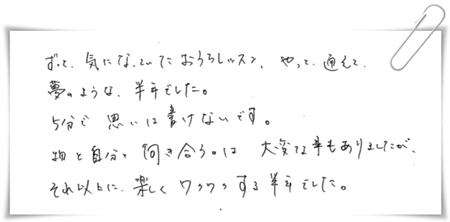 ずっと、気になっていたおうちレッスン、やっと、通えて、
夢のような、半年でした。
5分で 思いは書けないです。
物と自分と 向き合うのは 大変な事もありましたが、
それ以上に、楽しく ワクワクする半年でした。